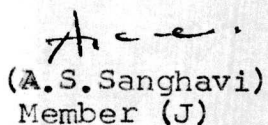 (A.S.Sanghavi)
Member (J)